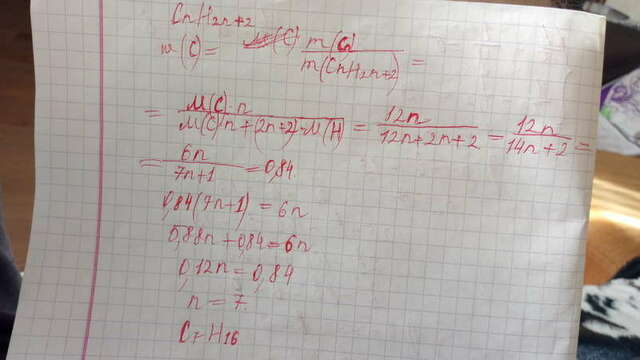 CnH2n+2
w(C) = m(C) / m(CnH2n+2) =
= M(C)·n / M(C)·n+(2n+2)·M(H) = 12n / 12n+2n+2 = 12n / 14n+2 =
= 6n / 7n+1 = 0,84
0,84(7n+1) = 6n
0,88n+0,84=6n
0,12n = 0,84
n = 7
C7H16